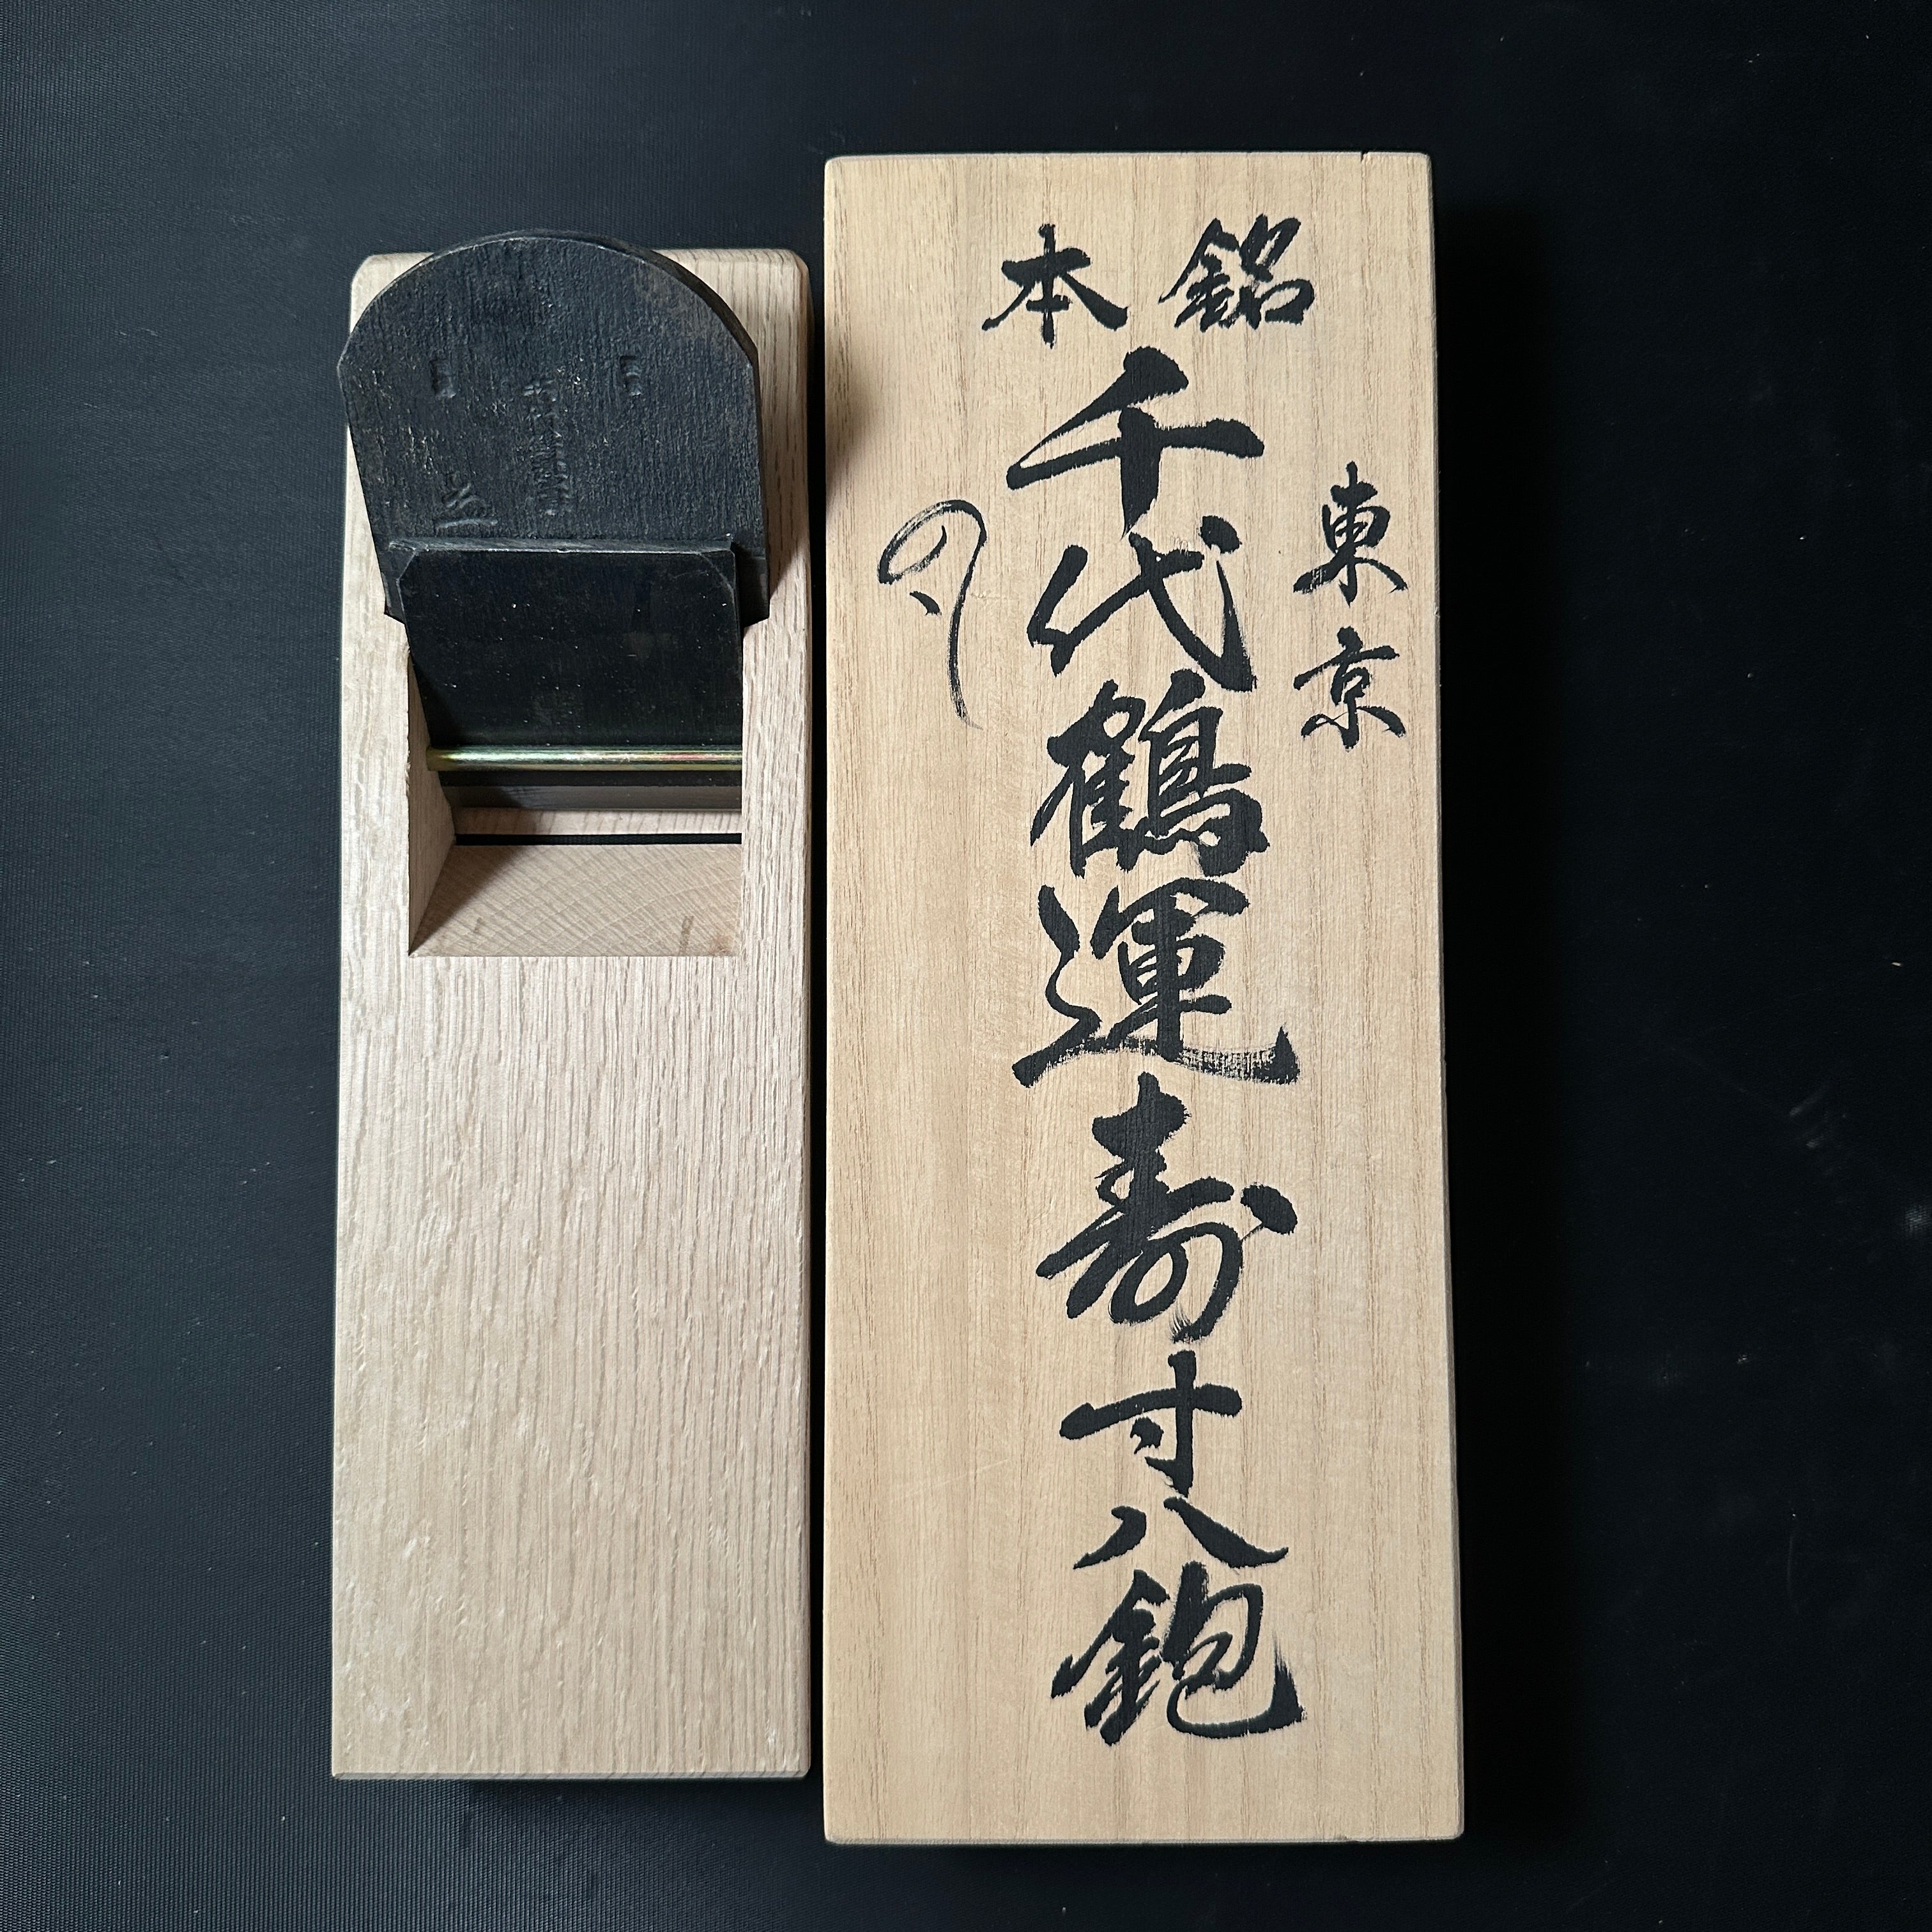 銘本
東京
千代鶴運寿寸八鉋